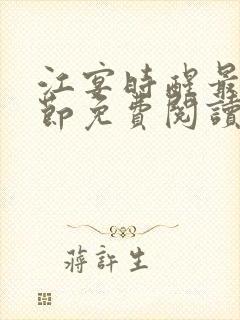 江宴時醒最
節免費閱讀
蔣許生